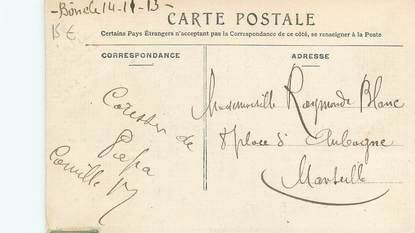 -Bône le 14-11-13-
15 €
CARTE POSTALE
Certains Pays Étrangers n'acceptent pas la Correspondance de ce côté, se renseigner à la Poste
CORRESPONDANCE
ADRESSE
Caresses de
Papa
Camille
Mademoiselle Raymonde Blanc
8 place d'Aubagne
Marseille